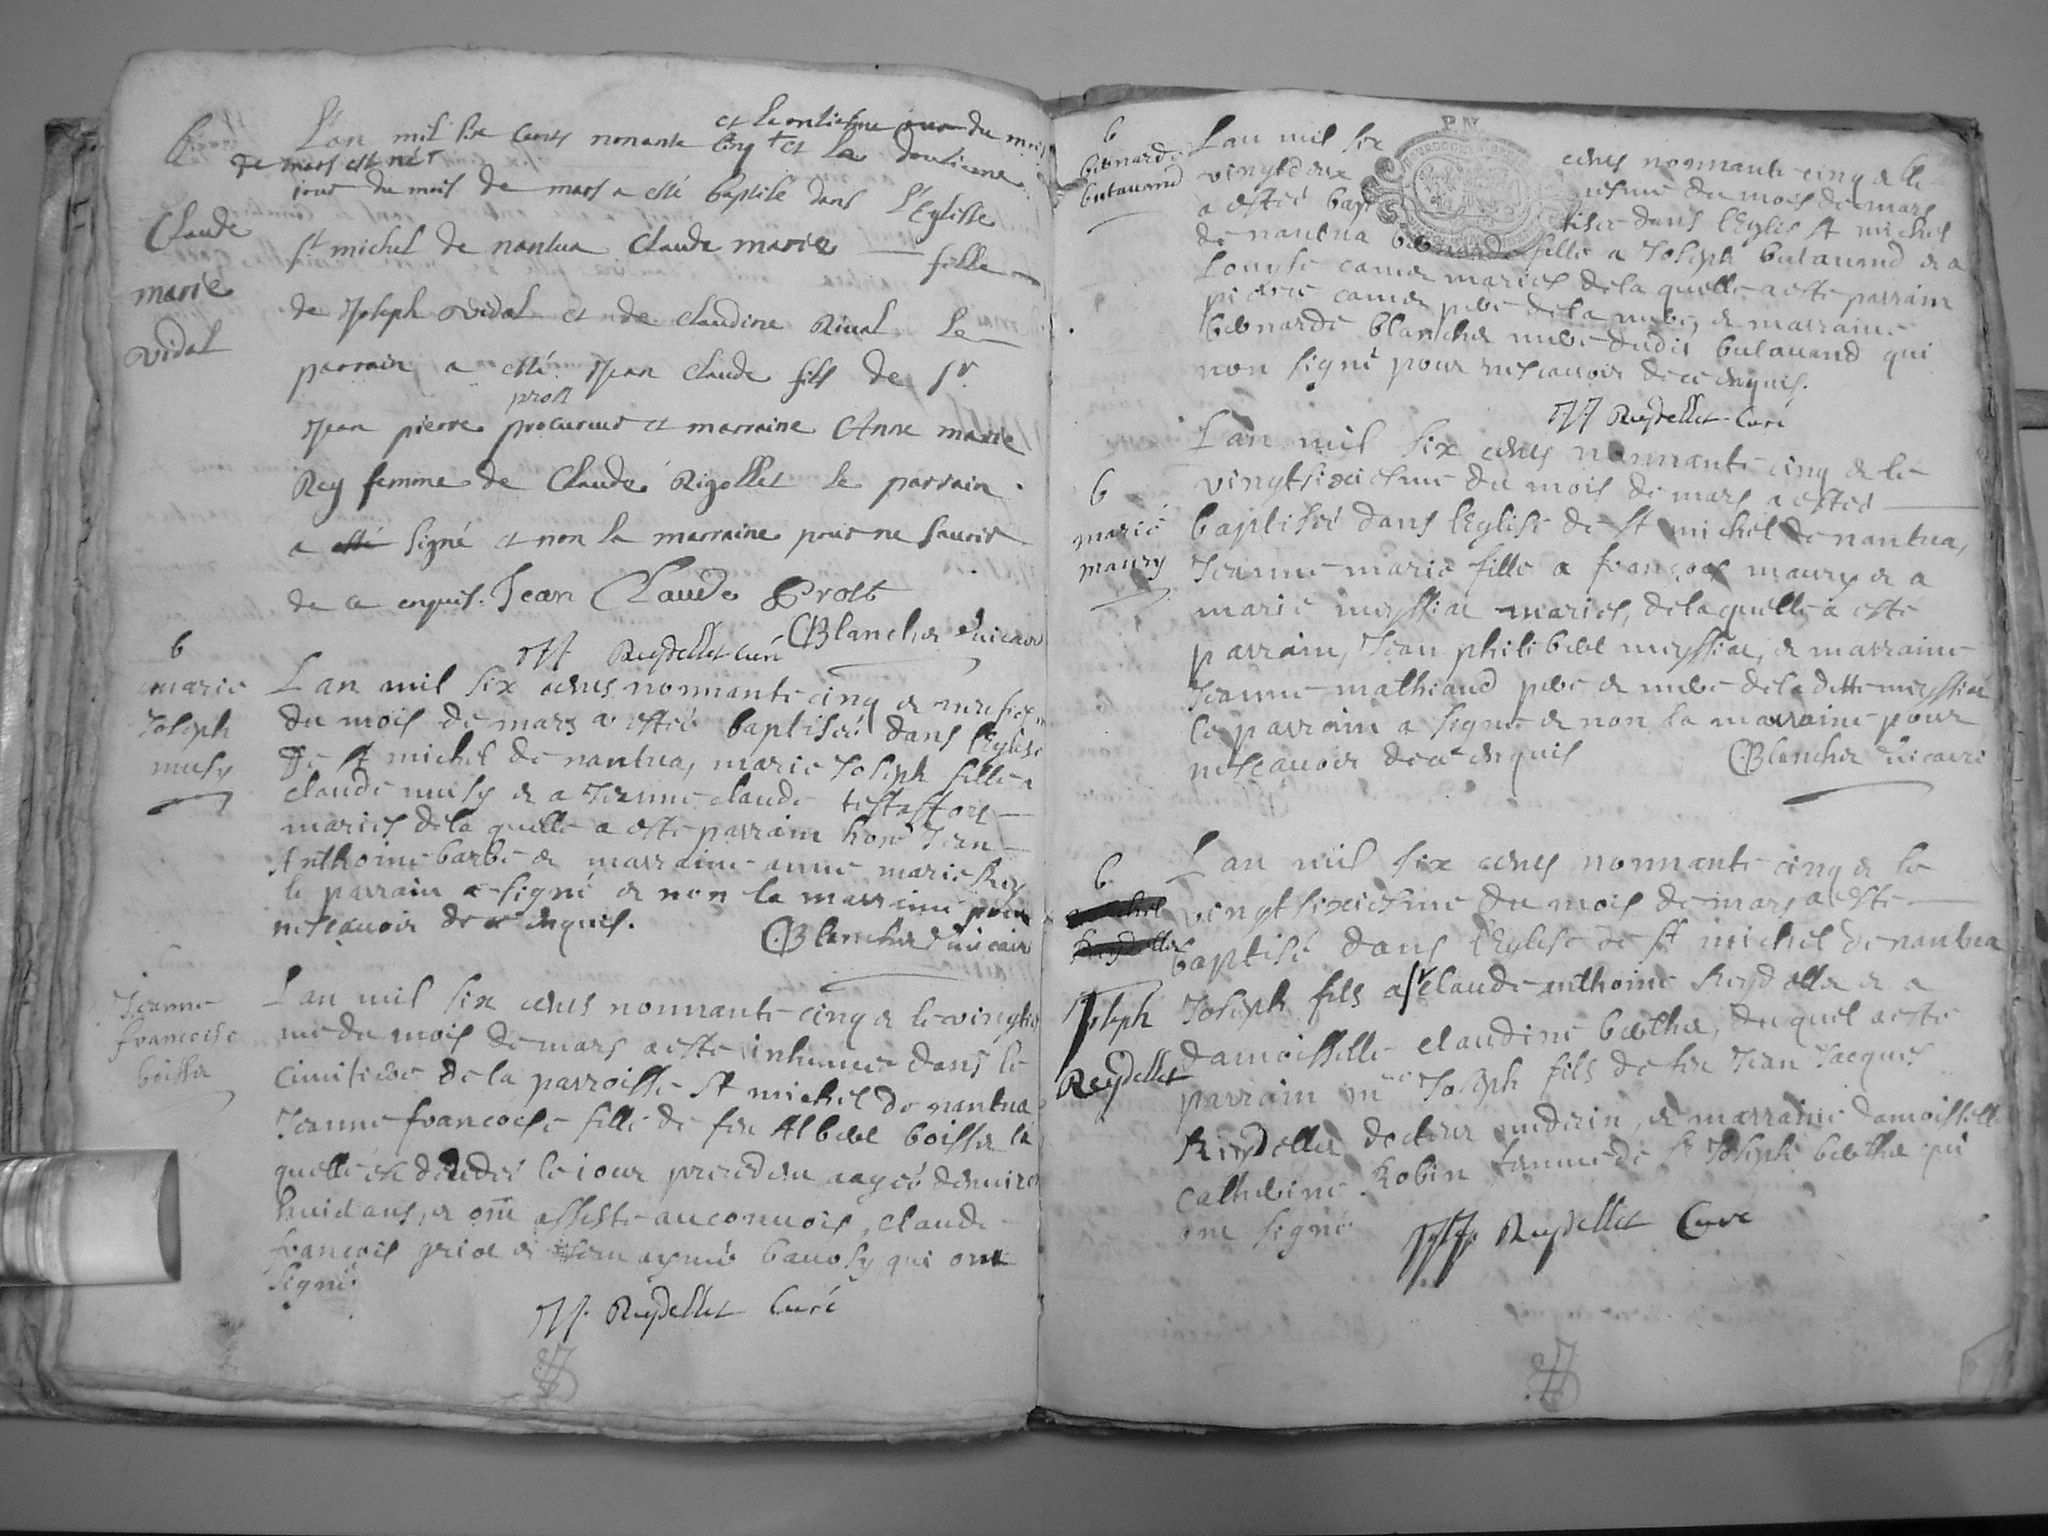 B
L'an mil six cents nonante cinq + et le douzieme
et le onziesme jour du mois
de mars est né +
jour du mois de mars a esté baptisé dans l'Eglisse
Claude
marie
vidal
St michel de nantua Claude marie fille
de Joseph vidal et de claudine Rival le
parrain a esté Jean claude fils de Sr
prost
Jean pierre procureur et marraine Anne marie
Rey femme de Claude Rigollet le parrain
a esté signé et non la marraine pour ne savoir
de ce enquis. Jean Claude Prost
CBlanchet vicaire
JJ Reydellet curé
b
marie
Joseph
musy
L an mil six cents nonnante cinq et
du mois de mars a estée baptisée dans l'Eglise
de St michel de nantua, marie Joseph fille a
claude musy et a Jeanne claude
mariés de la quelle a esté parrain Jean
Anthoine barbe et marraine anne marie Rey
le parrain a signé et non la marraine pour
ne scavoir de ce enquis. CBlanchet vicaire
Jeanne
francoise
boisset
L an mil six cents nonnante cinq et le
me du mois de mars a esté inhumée dans le
cimitiere de la parroisse St michel de nantua
Jeanne francoise fille de feu Albert boisset la
quelle est decedée le iour precedent aagée denviron
huict ans, et ont assisté au conuois, claude
françois et Jean aymé bauosy qui ont
signé
JJ. Reydellet Curé
b
bernarde
butauand
L an mil six cents nonnante cinq et le
vingtdeuxiesme du mois de mars
a estée baptisée dans l'Eglise St michel
de nantua bernarde fille a Joseph butauand et a
Louyse carrier mariés de la quelle a esté parrain
pierre carrier pere de la mere, et marraine
bernarde blanchet mere dudit butauand qui
non signé pour ne scauoir de ce enquis.
JJ Reydellet Curé
b
marie
maury
L an mil six cents nonnante cinq et le
vingtsixiesme du mois de mars a estée
baptisée dans l'Eglise de St michel de nantua,
Jeanne marie fille a françois maury et a
marie meyssiat mariés, de la quelle a esté
parrain, Jean philibert meyssiat, et marraine
Jeanne mathieud pere et mere de la ditte meyssiat
le parrain a signé et non la marraine pour
ne scauoir de ce enquis CBlanchet vicaire
b
Joseph
Reydellet
L an mil six cents nonnante cinq et le
vingt sixiesme du mois de mars a esté
baptisé dans l'Eglise de St michel de nantua
Joseph fils a sr claude anthoine Reydellet et a
damoisselle claudine berthet, du quel a esté
parrain me Joseph fils de feu Jean Jacques
Reydellet docteur medecin, et marraine damoisselle
catherine Robin femme de Sr Joseph berthet qui
ont signé JJ. Reydellet Curé